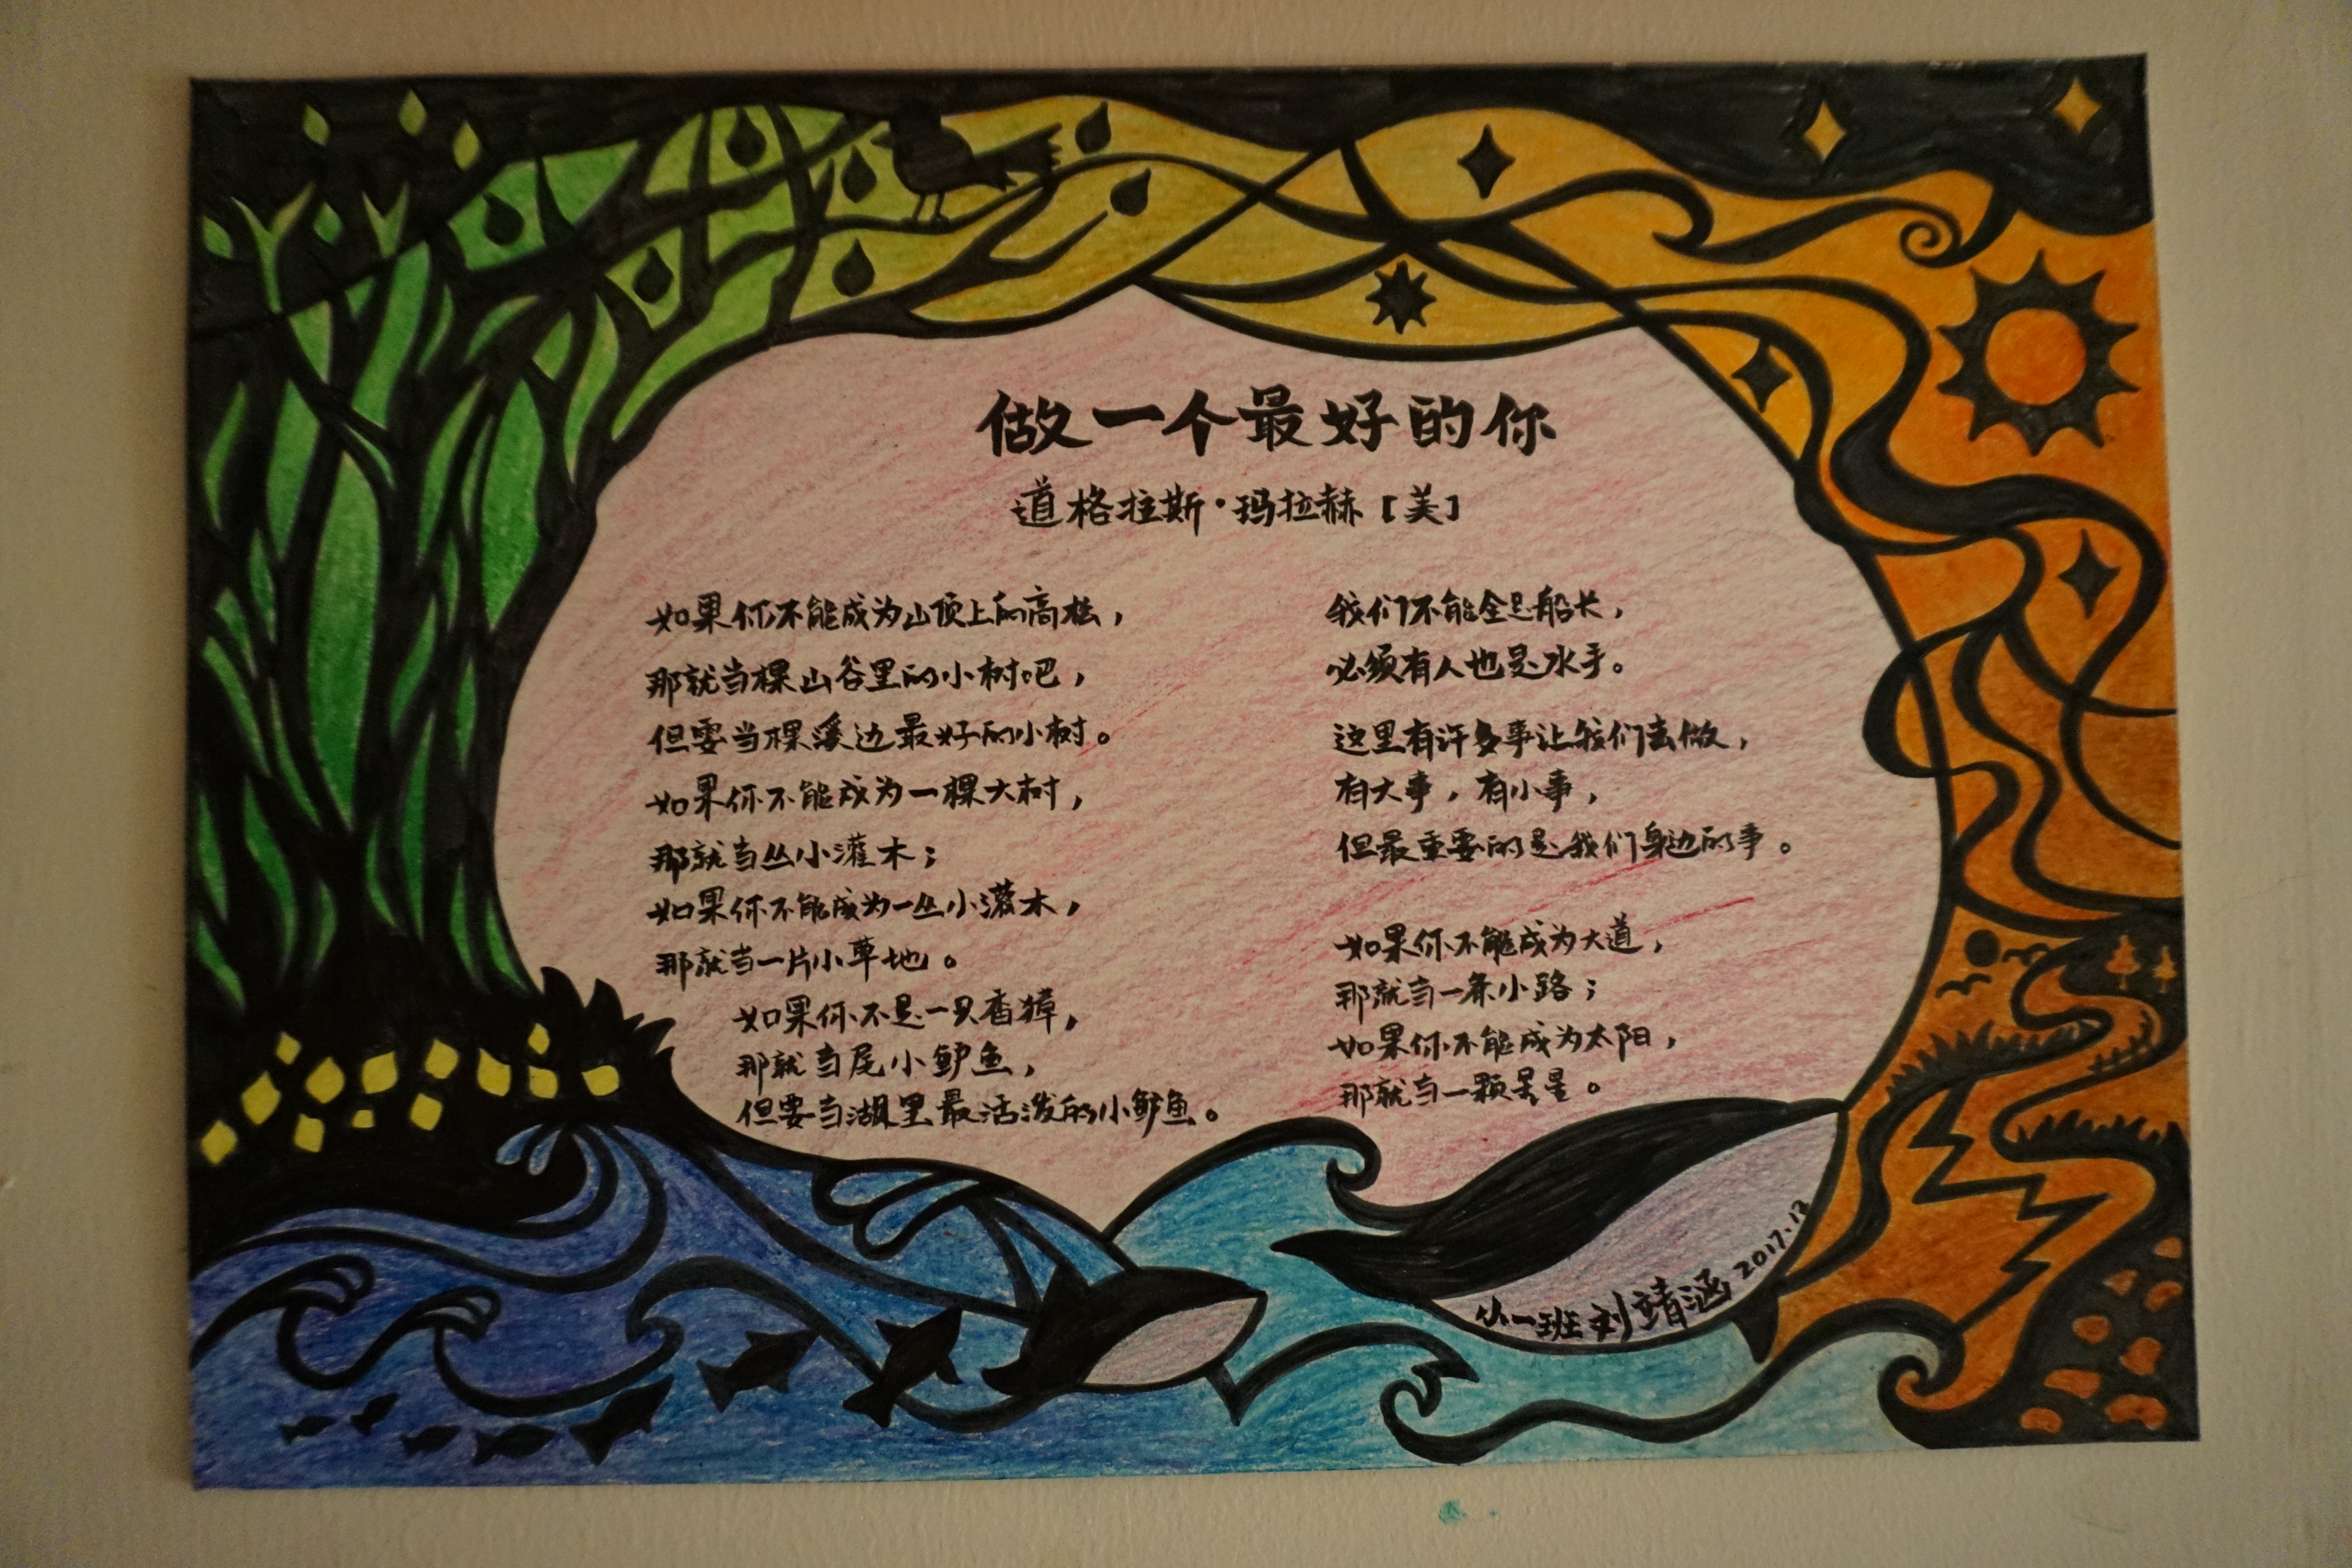 做一个最好的你
道格拉斯·玛拉赫[美]
如果你不能成为山顶上的高松，
那就当棵山谷里的小树吧，
但要当棵溪边最好的小树。
如果你不能成为一棵大树，
那就当丛小灌木；
如果你不能成为一丛小灌木，
那就当一片小草地。
如果你不是一只香獐，
那就当尾小鲈鱼，
但要当湖里最活泼的小鲈鱼。
我们不能全是船长，
必须有人也是水手。
这里有许多事让我们去做，
有大事，有小事，
但最重要的是我们身边的事。
如果你不能成为大道，
那就当一条小路；
如果你不能成为太阳，
那就当一颗星星。
一班 刘靖涵 2017.12